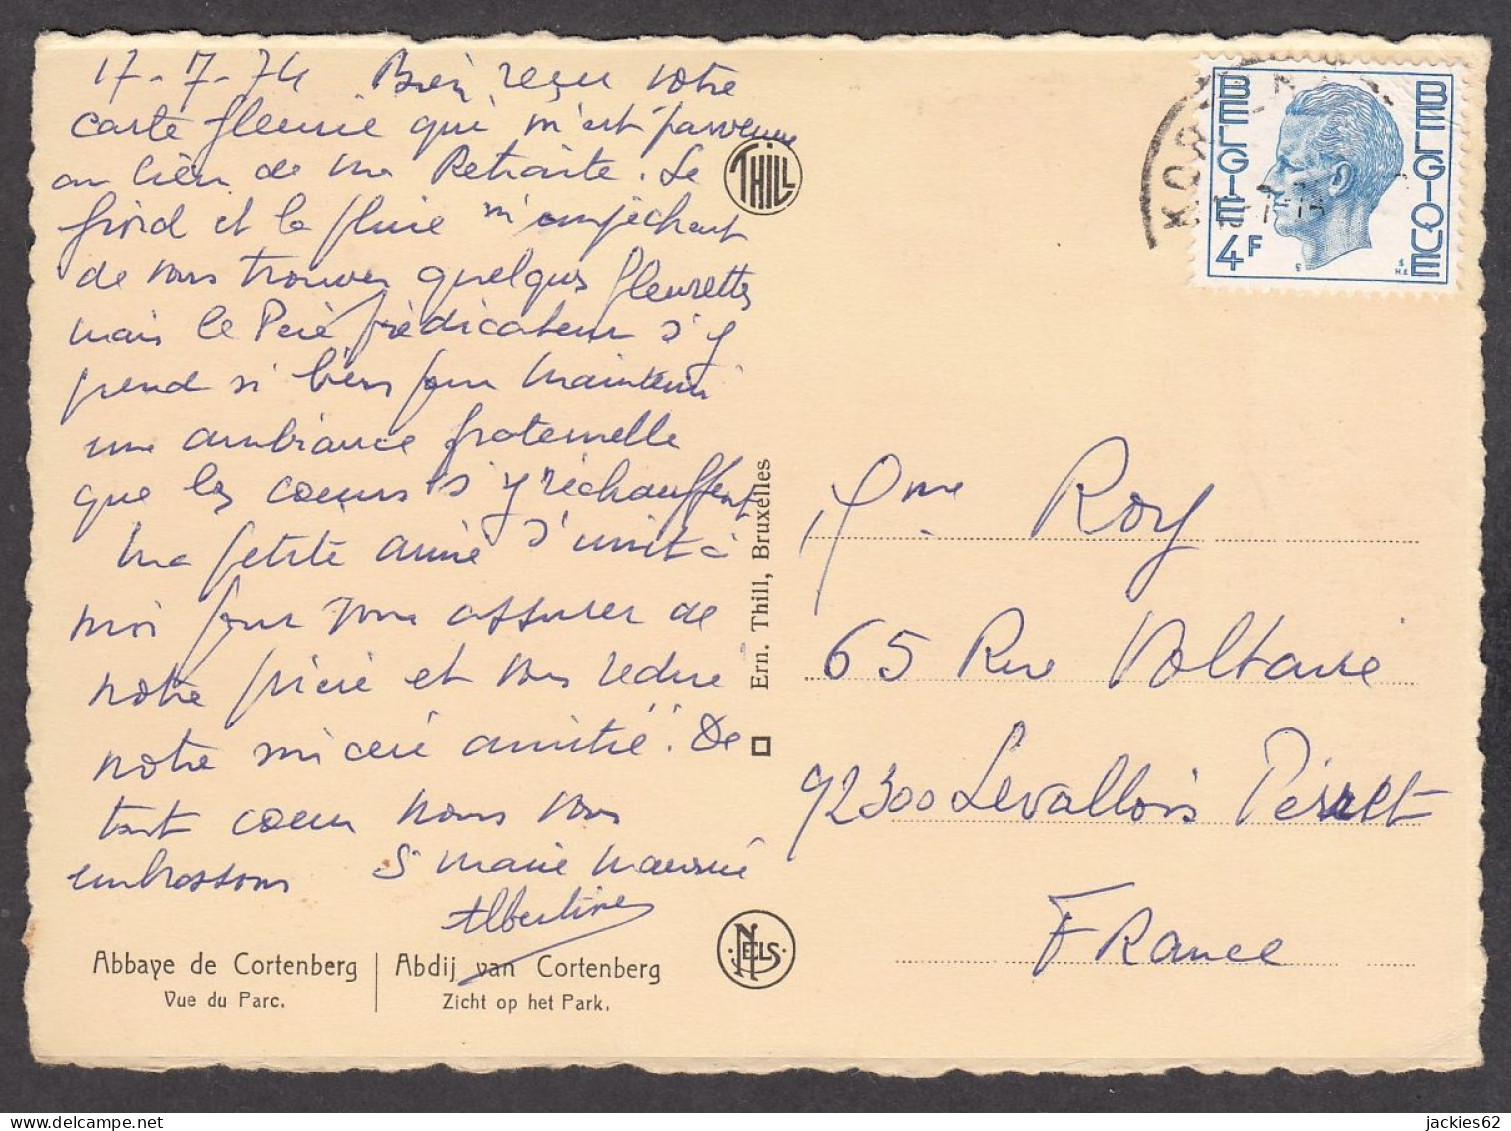 17-7-74 Bien reçu votre
carte fleurie qui m'est parvenue
au lieu de ma Retraite. Le
froid et la pluie m'empêchent
de vous trouver quelques fleurettes
mais le Père prédicateur s'y
prend si bien pour maintenir
une ambiance fraternelle
que les cœurs s'y réchauffent
Ma petite amie s'unit à
moi pour vous assurer de
notre prière et vous redire
notre sincère amitié. De
tout cœur nous vous
embrassons Sr Marie
Albertine
THILL
Abbaye de Cortenberg
Vue du Parc.
Abdij van Cortenberg
Zicht op het Park.
NELS
Ern. Thill, Bruxelles
BELGIE BELGIQUE
4F
KOR
Mme Roy
65 Rue Voltaire
92300 Levallois Perret
FRance
jackies62